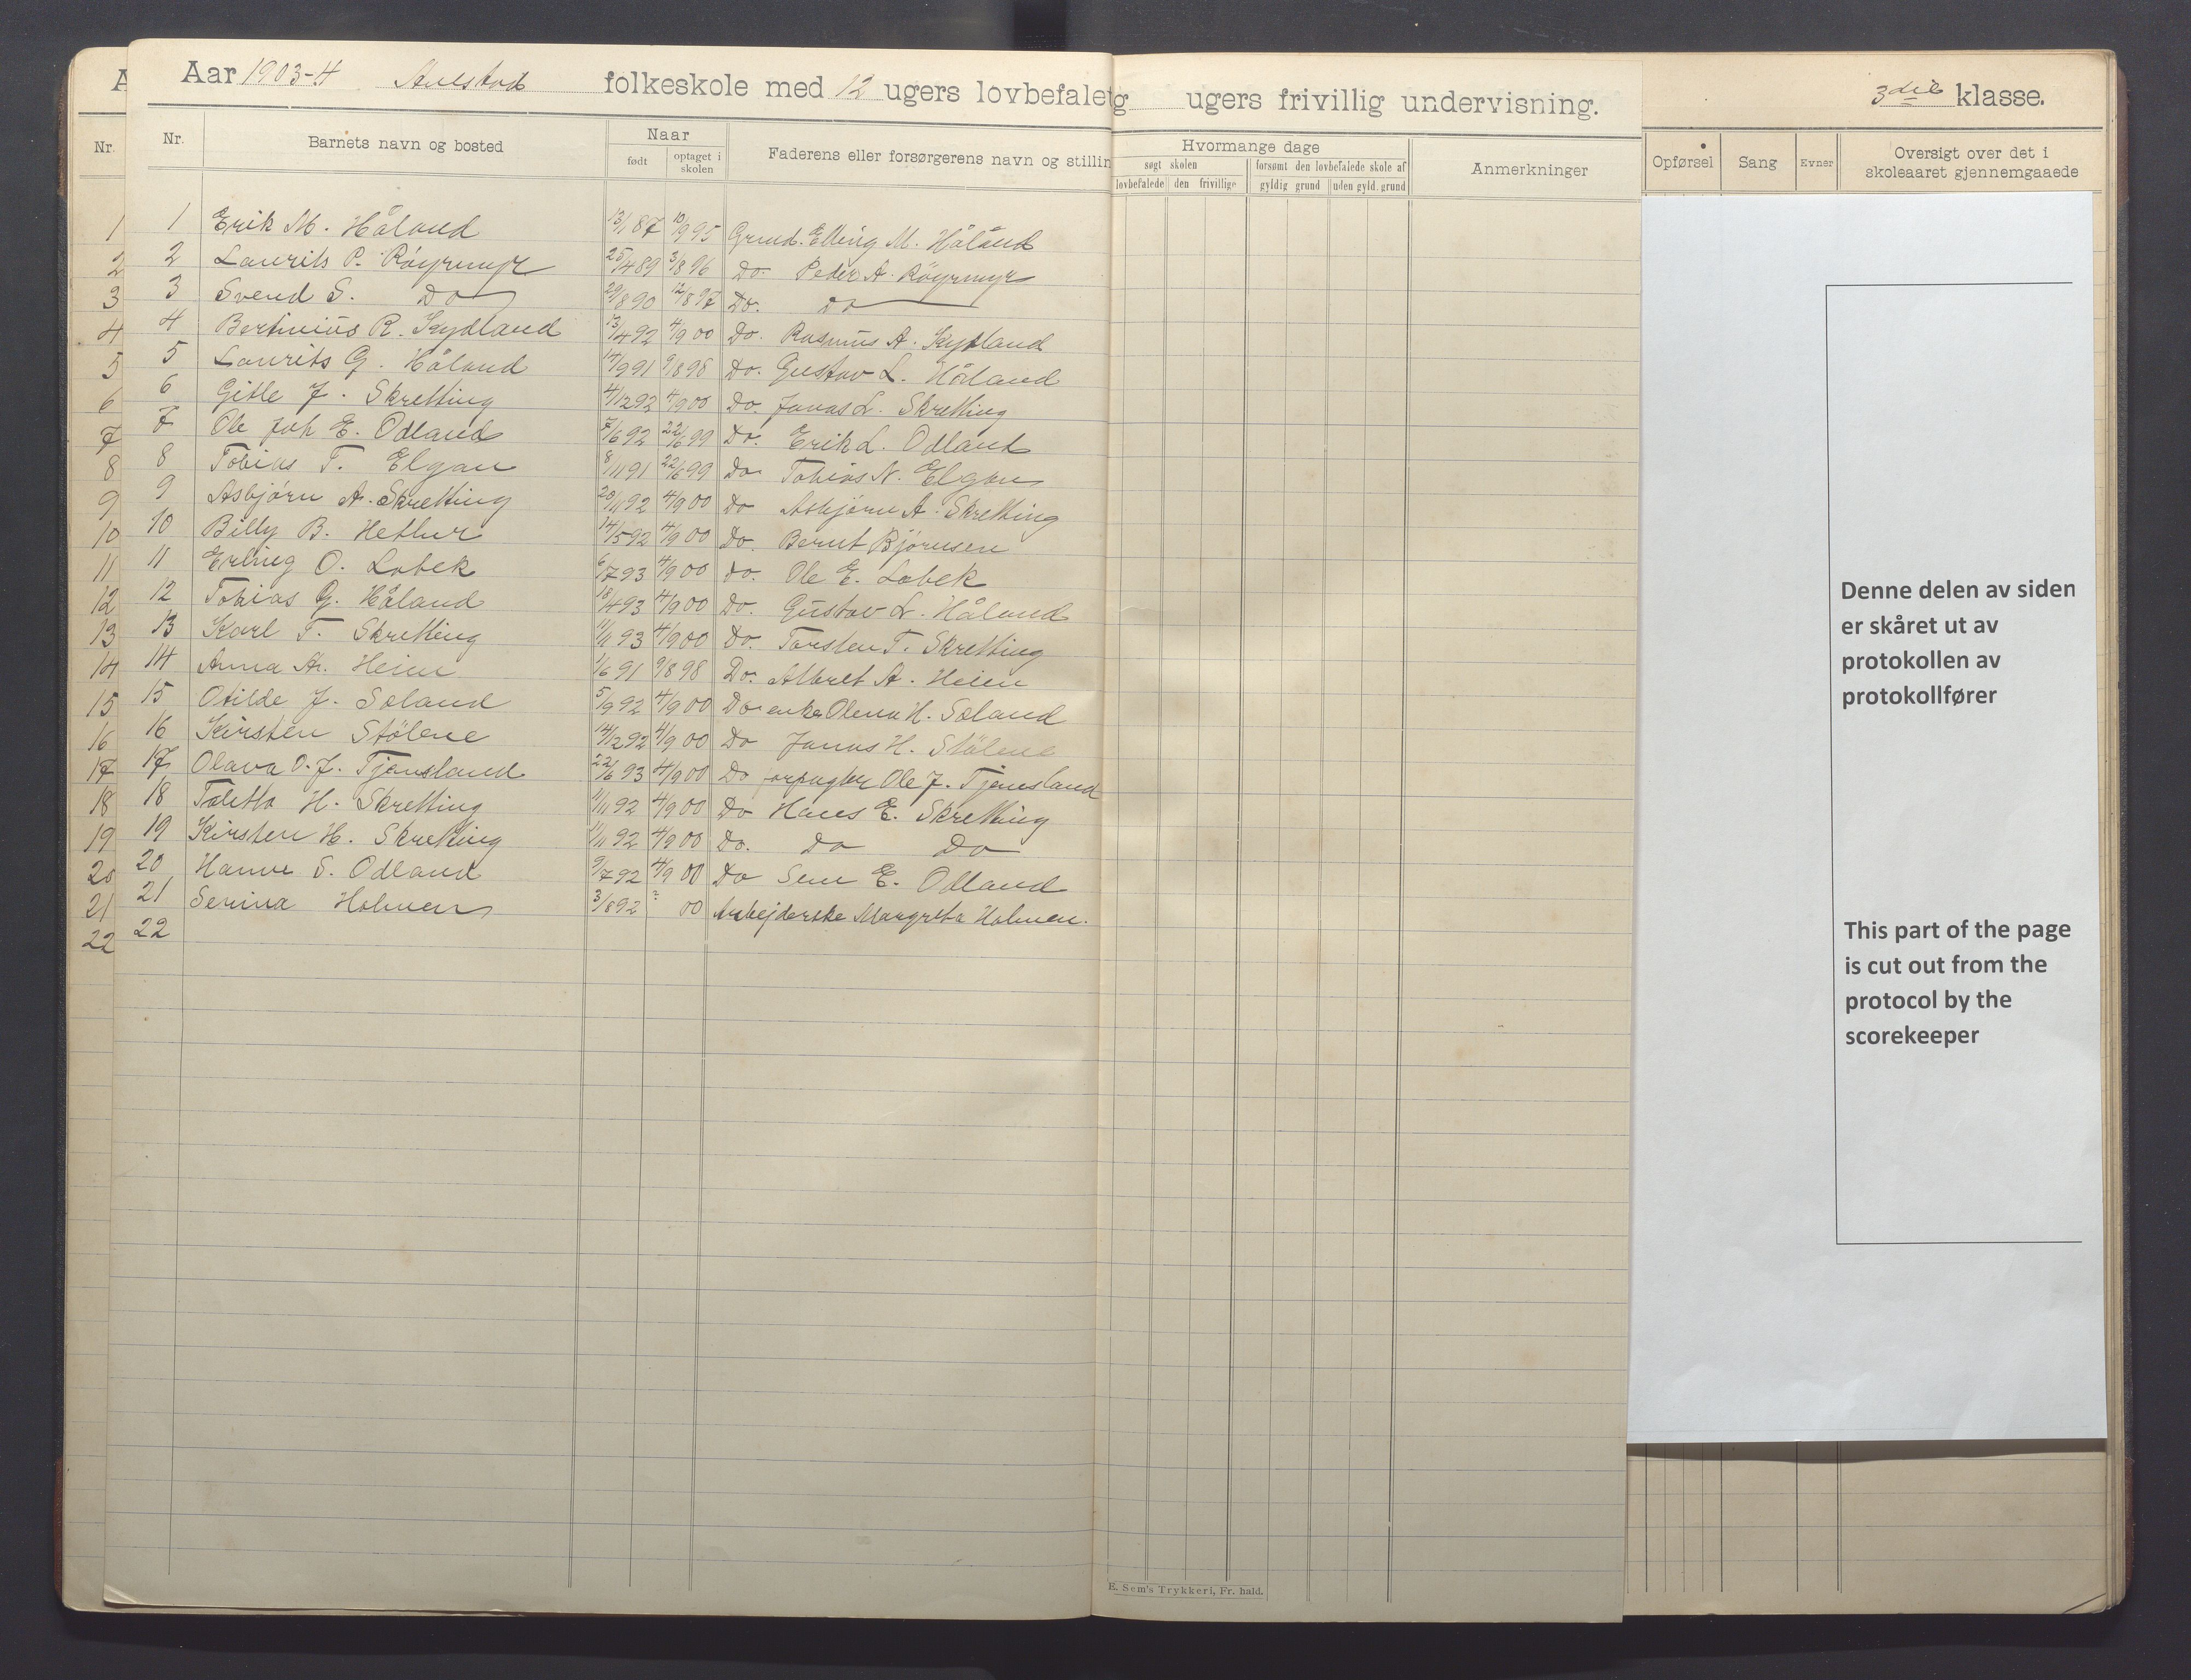 Aar 1903-4 Aulestad folkeskole med 12 ugers lovbefalet
g ugers frivillig undervisning.
3die klasse.
Nr. Nr. Barnets navn og bosted Naar Faderens eller forsørgerens navn og stillin
født optaget i skolen
Hvormange dage Anmerkninger
søgt skolen forsømt den lovbefalede skole af
lovbefalede den frivillige gyldig grund uden gyld. grund
Opførsel Sang Evner Oversigt over det i
skoleaaret gjennemgaaede
1 1 Erik M. Håland 13/1 87 10/9 95 Grmd. Elling M. Håland
2 2 Laurits P. Röyrmyr 25/4 89 3/8 96 Do. Peder A. Röyrmyr
3 3 Svend S. Do 29/8 90 12/8 97 Do. Do
4 4 Bertinius R. Kydland 13/4 92 4/9 00 Do. Rasmus A. Kydland
5 5 Laurits G. Håland 14/9 91 9/8 98 Do. Gustav L. Håland
6 6 Gitle J. Skretting 4/12 92 4/9 00 Do. Jonas L. Skretting
7 7 Ole Joh E. Odland 7/6 92 22/6 99 Do. Erik L. Odland
8 8 Tobias T. Elgan 8/11 91 22/6 99 Do Tobias N. Elgan
9 9 Asbjörn A. Skretting 20/11 92 4/9 00 Do Asbjörn A. Skretting
10 10 Billy B. Hetlur 14/5 92 4/9 00 Do. Bernt Björnsen
11 11 Erling O. Lobek 6/7 93 4/9 00 Do. Ole E. Lobek
12 12 Tobias G. Håland 18/4 93 4/9 00 Do. Gustav L. Håland
13 13 Karl T. Skretting 11/1 93 4/9 00 Do. Torsten T. Skretting
14 14 Anna A. Heien 1/6 91 9/8 98 Do. Albret A. Heien
15 15 Otilde J. Soland 5/9 92 4/9 00 Do enke Olena H. Soland
16 16 Kirsten Stölene 14/12 92 4/9 00 Do Jonas H. Stölene
17 17 Olava O. J. Tjensland 22/6 93 4/9 00 Do forpagter Ole J. Tjensland
18 18 Taletta H. Skretting 11/11 92 4/9 00 Do Hans E. Skretting
19 19 Kirsten H. Skretting 11/11 92 4/9 00 Do. Do Do
20 20 Hanne S. Odland 9/7 92 4/9 00 Do Sem E. Odland
21 21 Serina Holmen 3/8 92 ? 00 Arbejderske Margreta Holmen.
22 22
E. Sem's Trykkeri, Fr. hald.
Denne delen av siden
er skåret ut av
protokollen av
protokollfører
This part of the page
is cut out from the
protocol by the
scorekeeper